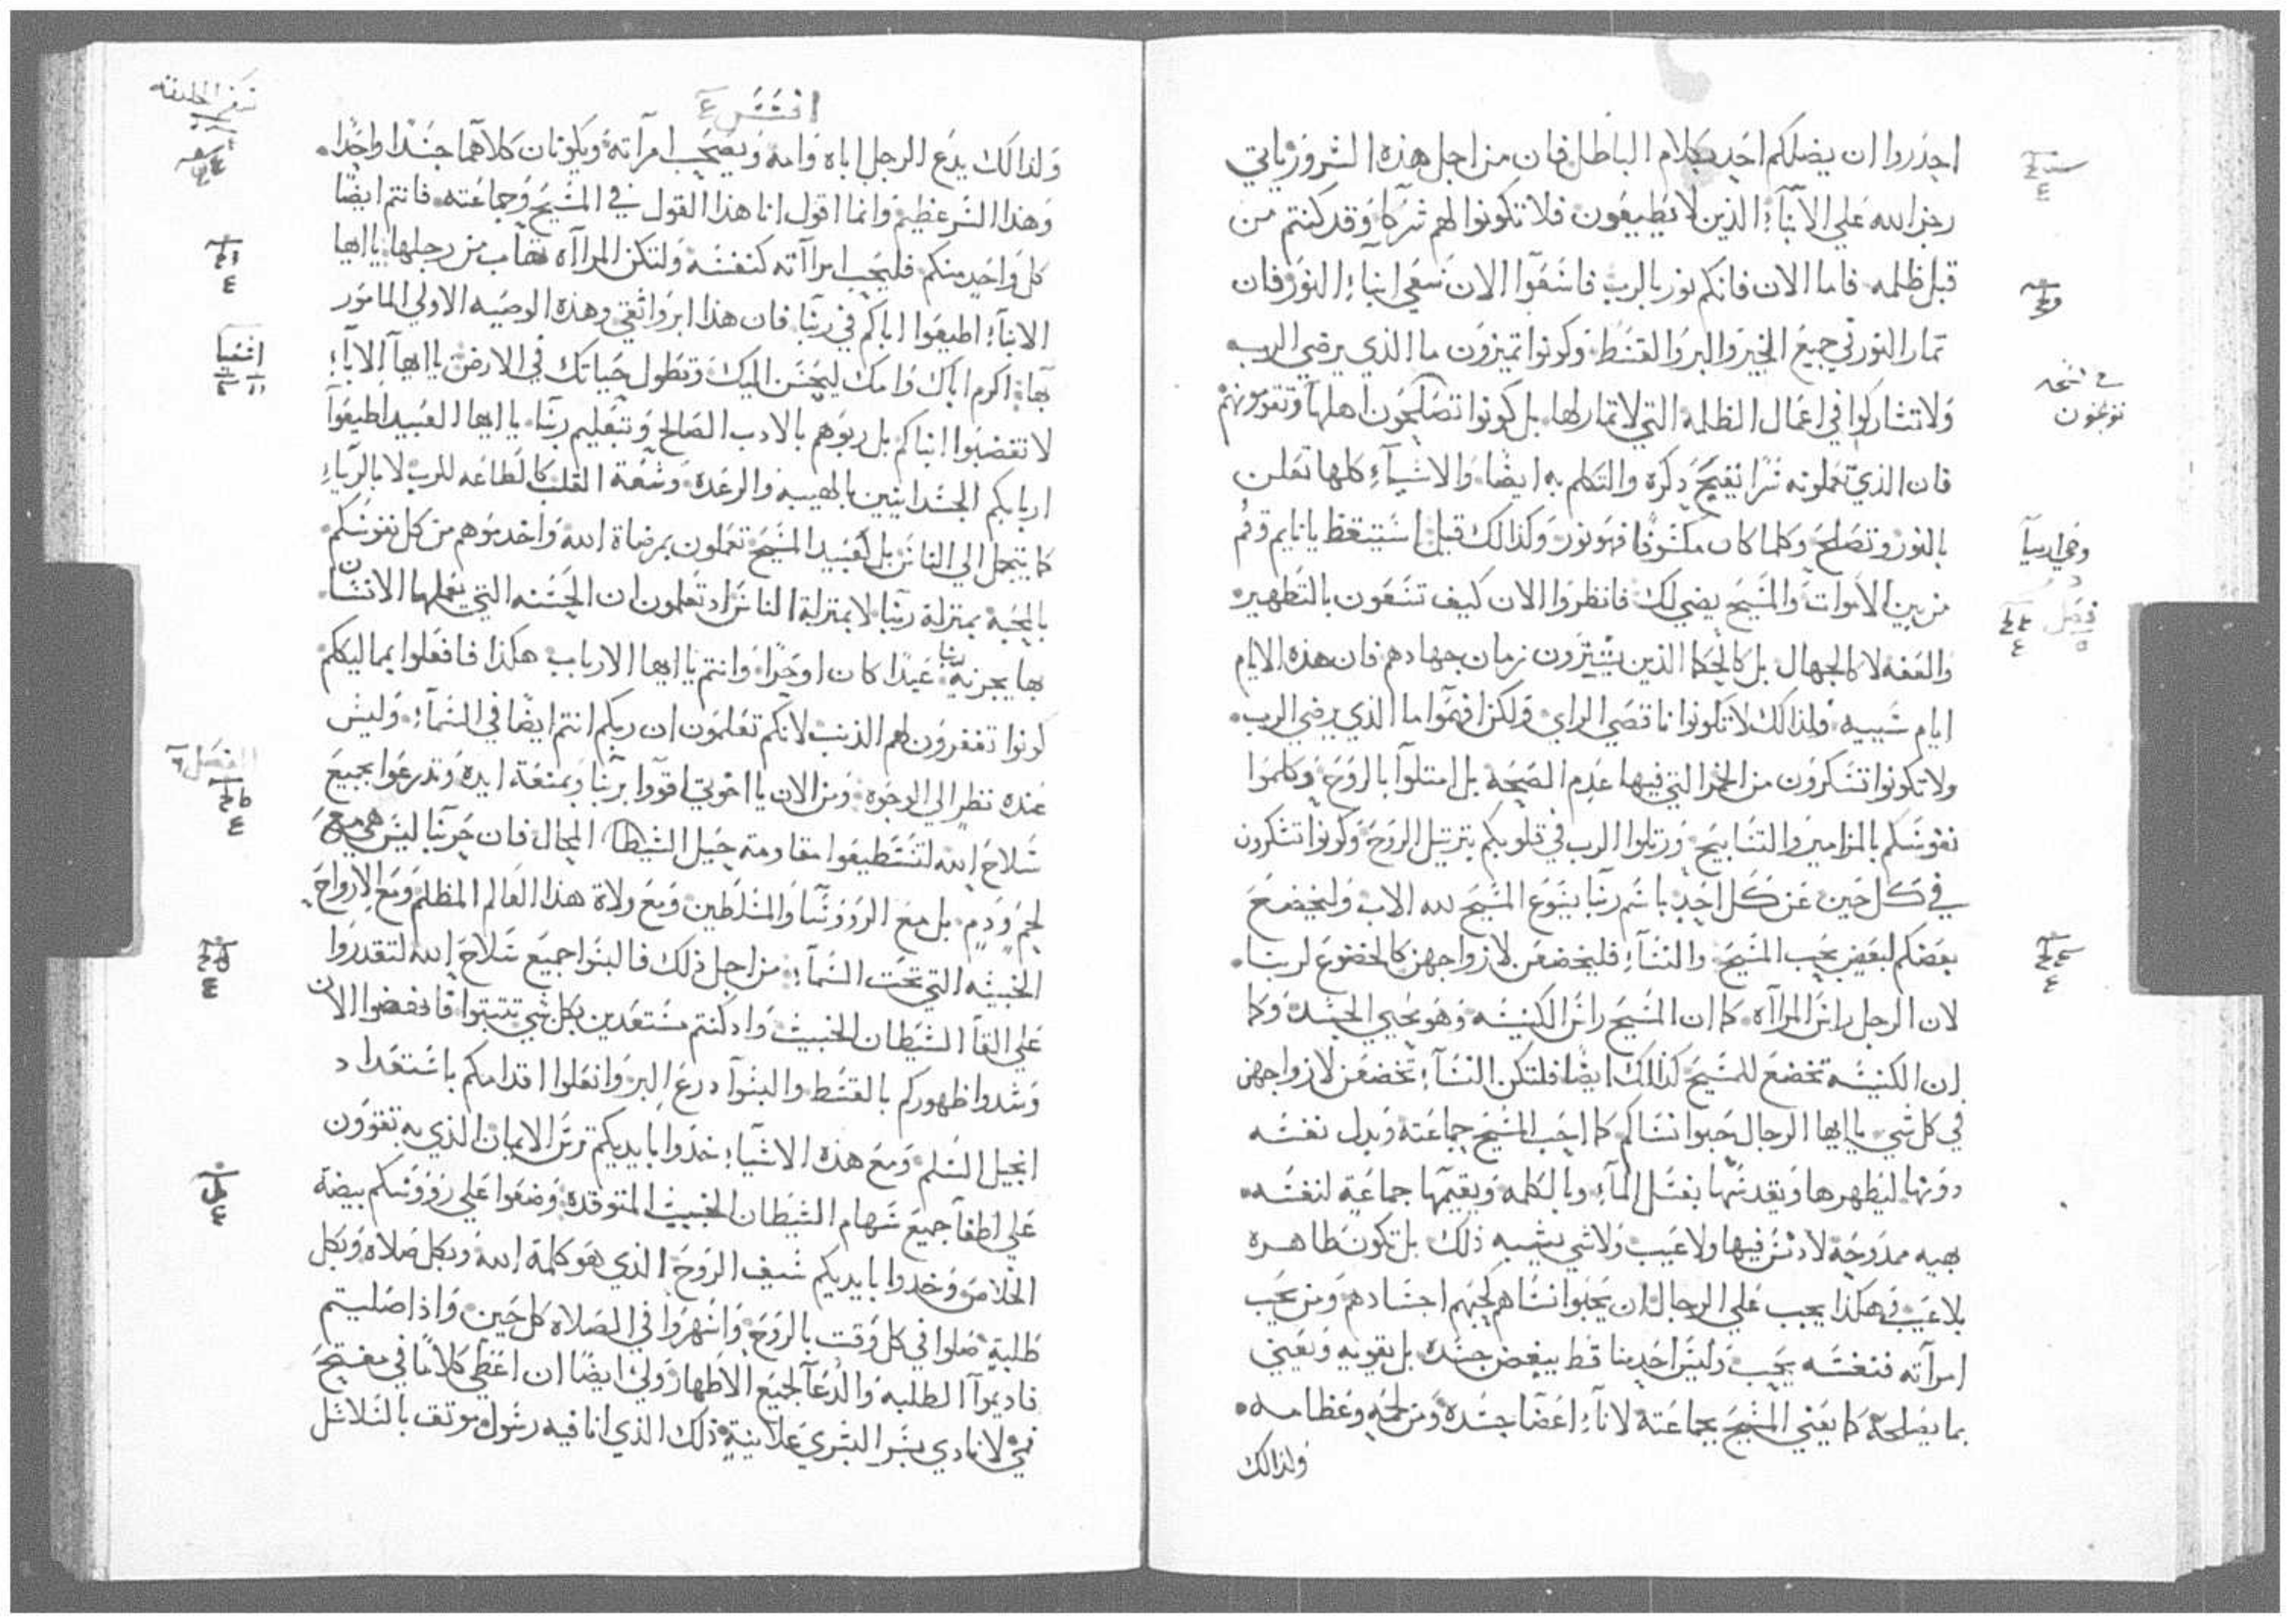 احذروا ان يضلكم احد بكلام الباطل فان من اجل هذه الشرور ياتي
رجز الله علي الابناء الذين لا يطيعون فلا تكونوا لهم شركا وقد كنتم من
قبل ظلمه فاما الان فانكم نور بالرب فاسعوا الان سعي ابناء النور فان
ثمار النور في جميع الخير والبر والقسط وكونوا تميزون ما الذي يرضي الرب
ولا تشاركوا في اعمال الظلمة التي لا ثمار لها بل كونوا
في نسخه
توبخون
فان الذي تعملونه سرا يقبح ذكره والتكلم به ايضا والاشياء كلها تعلن
بالنور وتصلح وكلما كان مكشوفا فهو نور ولذالك قيل استيقظ يا نايم وقم
من بين الاموات والمسيح يضي لك فانظروا الان كيف تسعون بالتطهير
والعفه لا كالجهال بل كالحكما الذين يشترون زمان جهادهم فان هذه الايام
ايام شبيبه فلذالك لا تكونوا ناقصي الراي ولكن افهموا ما الذي يرضي الرب
ولا تكونوا تسكرون من الخمر التي فيها عدم الصحة بل امتلوا بالروح وكلموا
نفوسكم بالمزامير والتسابيح ورتلوا الرب في قلوبكم بترتيل الروح وكونوا تشكرون
في كل حين عن كل احد باسم ربنا يسوع المسيح لله الاب وليخضع
بعضكم لبعض بحب المسيح والنساء فليخضعن لازواجهن كالخضوع لربنا
لان الرجل راس المراه كما ان المسيح راس الكنيسه وهو محيي الجسد وكما
ان الكنيسه تخضع للمسيح كذالك ايضا فلتكن النساء تخضعن لازواجهن
في كل شي يا ايها الرجال حبوا نساكم كما احب المسيح جماعته وبدل نفسه
دونها ليطهرها ويقدسها بغسل الماء وبالكلمه ويقيمها جماعة لنفسه
بهيه ممدوحة لا دنس فيها ولا عيب ولا شي يشبه ذلك بل تكون طاهرة
بلا عيب فهكذا يجب علي الرجال ان يحبوا نساهم كحبهم اجسادهم ومن يحب
امراته فنفسه يحب وليس احد منا قط يبغض جسده بل يقويه ويعني
بما يصلحه كما يعني المسيح بجماعته لانا اعضا جسده ومن لحمه وعظامه
ولذالك
افسس ٤
سفر الخليقه
ولذالك يدع الرجل اباه وامه ويصحب امراته ويكونان كلاهما جسدا واحدا
وهذا السر عظيم وانما اقول انا هذا القول في المسيح وجماعته فانتم ايضا
كل واحد منكم فليحب امراته كنفسه ولتكن المراه تهاب من رجلها يا ايها
الابناء اطيعوا اباكم في ربنا فان هذا ابر واتقي وهذه الوصيه الاولي المامور
بها اكرم اباك وامك ليحسن اليك وتطول حياتك في الارض يا ايها الاباء
لا تغضبوا ابناكم بل ربوهم بالادب الصالح وتبعليم ربنا يا ايها العبيد اطيعوا
اربابكم الجسدانيين بالهيبه والرعدة وسعة القلب كالطاعه للرب لا بالرياء
كما يتجمل الي الناس بل كعبيد المسيح تعملون بمرضاة الله واخدموهم من كل نفوسكم
بالمحبة بمنزلة ربنا لا بمنزلة الناس اد تعلمون ان الحسنه التي يعملها الانسان
بها يجزيه ربنا عبدا كان او حرا وانتم يا ايها الارباب هكذا فافعلوا بمماليككم
كونوا تغفرون لهم الذنب لانكم تعلمون ان ربكم انتم ايضا في السماء وليس
عنده نظر الي الوجوه
الفصل ٦
ومن الان يا اخوتي اقووا بربنا وبمنعة ايده وتدرعوا بجميع
سلاح الله لتستطيعوا مقاومة حيل الشيطان المحال فان حربنا ليس هي مع
لحم ودم بل مع الروؤسا والمسلطين ومع ولاة هذا العالم المظلم ومع الارواح
الخبيثه التي تحت السماء من اجل ذلك فالبسوا جميع سلاح الله لتقدروا
علي القا الشيطان الخبيث واد كنتم مستعدين بكل شي تثبتوا فانهضوا الان
وشدوا ظهوركم بالقسط والبسوا درع البر وانعلوا اقدامكم باستعداد
انجيل السلم ومع هذه الاشياء خدوا بايديكم ترس الايمان الذي به تقوون
علي اطفا جميع سهام الشيطان الخبيث المتوقدة وضعوا علي روؤسكم بيضة
الخلاص وخدوا بايديكم سيف الروح الذي هو كلمة الله وبكل صلاه وبكل
طلبة صلوا في كل وقت بالروح واسهروا في الصلاه كل حين واذا صليتم
فاديموا الطلبه والدعا لجميع الاطهار ولي ايضا ان اعطي كلاما في مفتتح
فمي لانادي بسر البشري علانية ذلك الذي انا فيه رسول موتق بالسلاسل